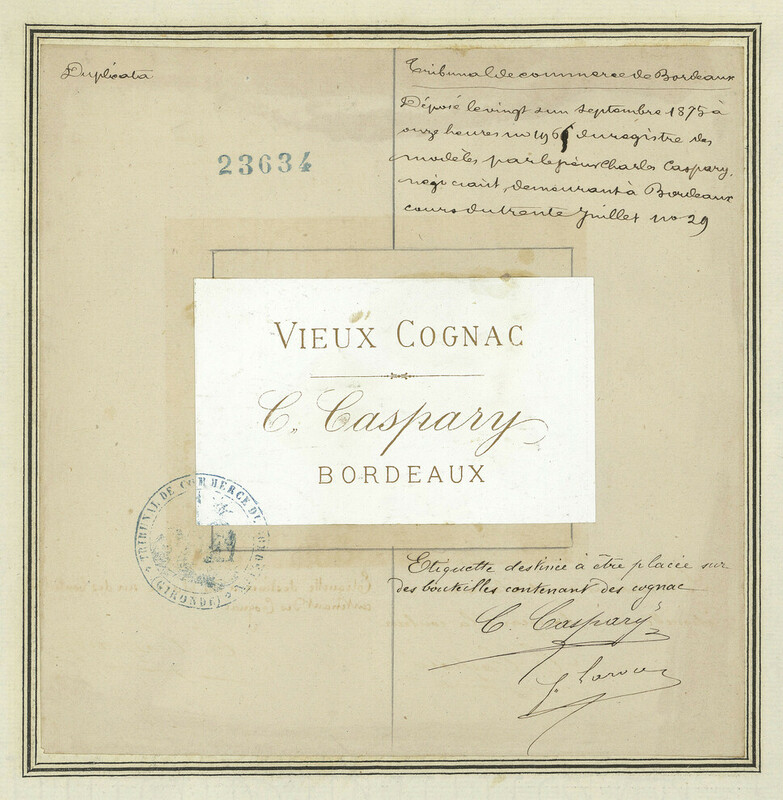 Duplicata
23634
Tribunal de commerce de Bordeaux
Déposé le vingt un septembre 1875 à
onze heures no du régistre des
modèles par le Charles Caspary,
négociant, demeurant à Bordeaux
cours du trente Juillet no 29
VIEUX COGNAC
C. Caspary
BORDEAUX
TRIBUNAL DE COMMERCE DE
(GIRONDE)
Etiquette destinée à être placée sur
des bouteilles contenant des cognac
C. Caspary